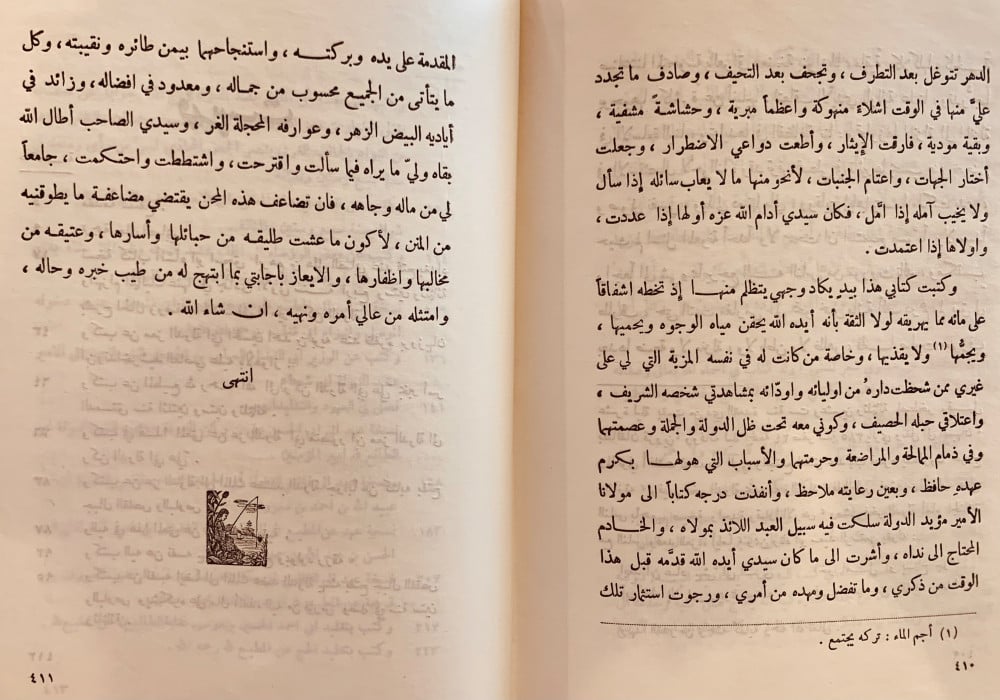 الدهر تتوغل بعد التطرف ، وتجحف بعد التحيف ، وصادف ما تجدد
عليّ منها في الوقت اشلاء منهوكة واعظماً مبرية ، وحشاشةً مشفية ،
وبقية مودية ، ففارقت الإيثار ، وأطعت دواعي الاضطرار ، وجعلت
أختار الجهات ، واعتام الجنبات ، لأنحو منها ما لا يعاب سائله إذا سأل
ولا يخيب آمله إذا امّل ، فكان سيدي أدام الله عزه أولها إذا عددت ،
واولاها إذا اعتمدت .
وكتبت كتابي هذا بيدٍ يكاد وجهي يتظلم منهـا إذ تخطه اشفاقاً
على مائه مما يهريقه لولا الثقة بأنه أيده الله يحقن مياه الوجوه ويحميها ،
ويجمُّها (١) ولا يقذيها ، وخاصة من كانت له في نفسه المزية التي لي على
غيري ممن شحظت داره ُ من اوليائه واودّائه بمشاهدتي شخصه الشريف ،
واعتلاقي حبله الحصيف ، وكوني معه تحت ظل الدولة والجملة وعصمتهما
وفي ذمام الممالحة والمراضعة وحرمتهما والأسباب التي هو لهـا بكرم
عهدهِ حافظ ، وبعين رعايته ملاحظ ، وأنفذت درجه كتاباً الى مولانا
الأمير مؤيد الدولة سلكت فيه سبيل العبد اللائذ بمولاه ، والخـادم
المحتاج الى نداه ، وأشرت الى ما كان سيدي أيده الله قدَّمه قبل هذا
الوقت من ذكري ، وما تفضل ومهده من أمري ، ورجوت استثمار تلك
(١) أجم الماء : تركه يجتمع .
٤١٠
المقدمة على يده وبركتـه ، واستنجاحهما بيمن طائره ونقيبته ، وكل
ما يتأتى من الجميع محسوب من جمـاله ، ومعدود في افضاله ، وزائد في
أياديه البيض الزهر ، وعوارفه المحجلة الغر ، وسيدي الصاحب أطال الله
بقاه وليّ ما يراه فيما سألت واقترحت ، واشتططت واحتكمت ، جامعاً
لي من ماله وجاهه ، فان تضاعف هذه المحن يقتضي مضاعفة ما يطوقنيه
من المنن ، لأكون ما عشت طليقه من حبائلها وأسارها ، وعتيقه من
مخالبها واظفارها ، والايعاز باجابتي بما ابتهج له من طيب خبره وحاله ،
وامتثله من عالي أمره ونهيه ، ان شاء الله .
انتهى
٤١١